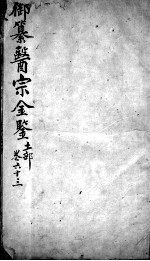 御纂醫宗金鑒
土部
卷六十三